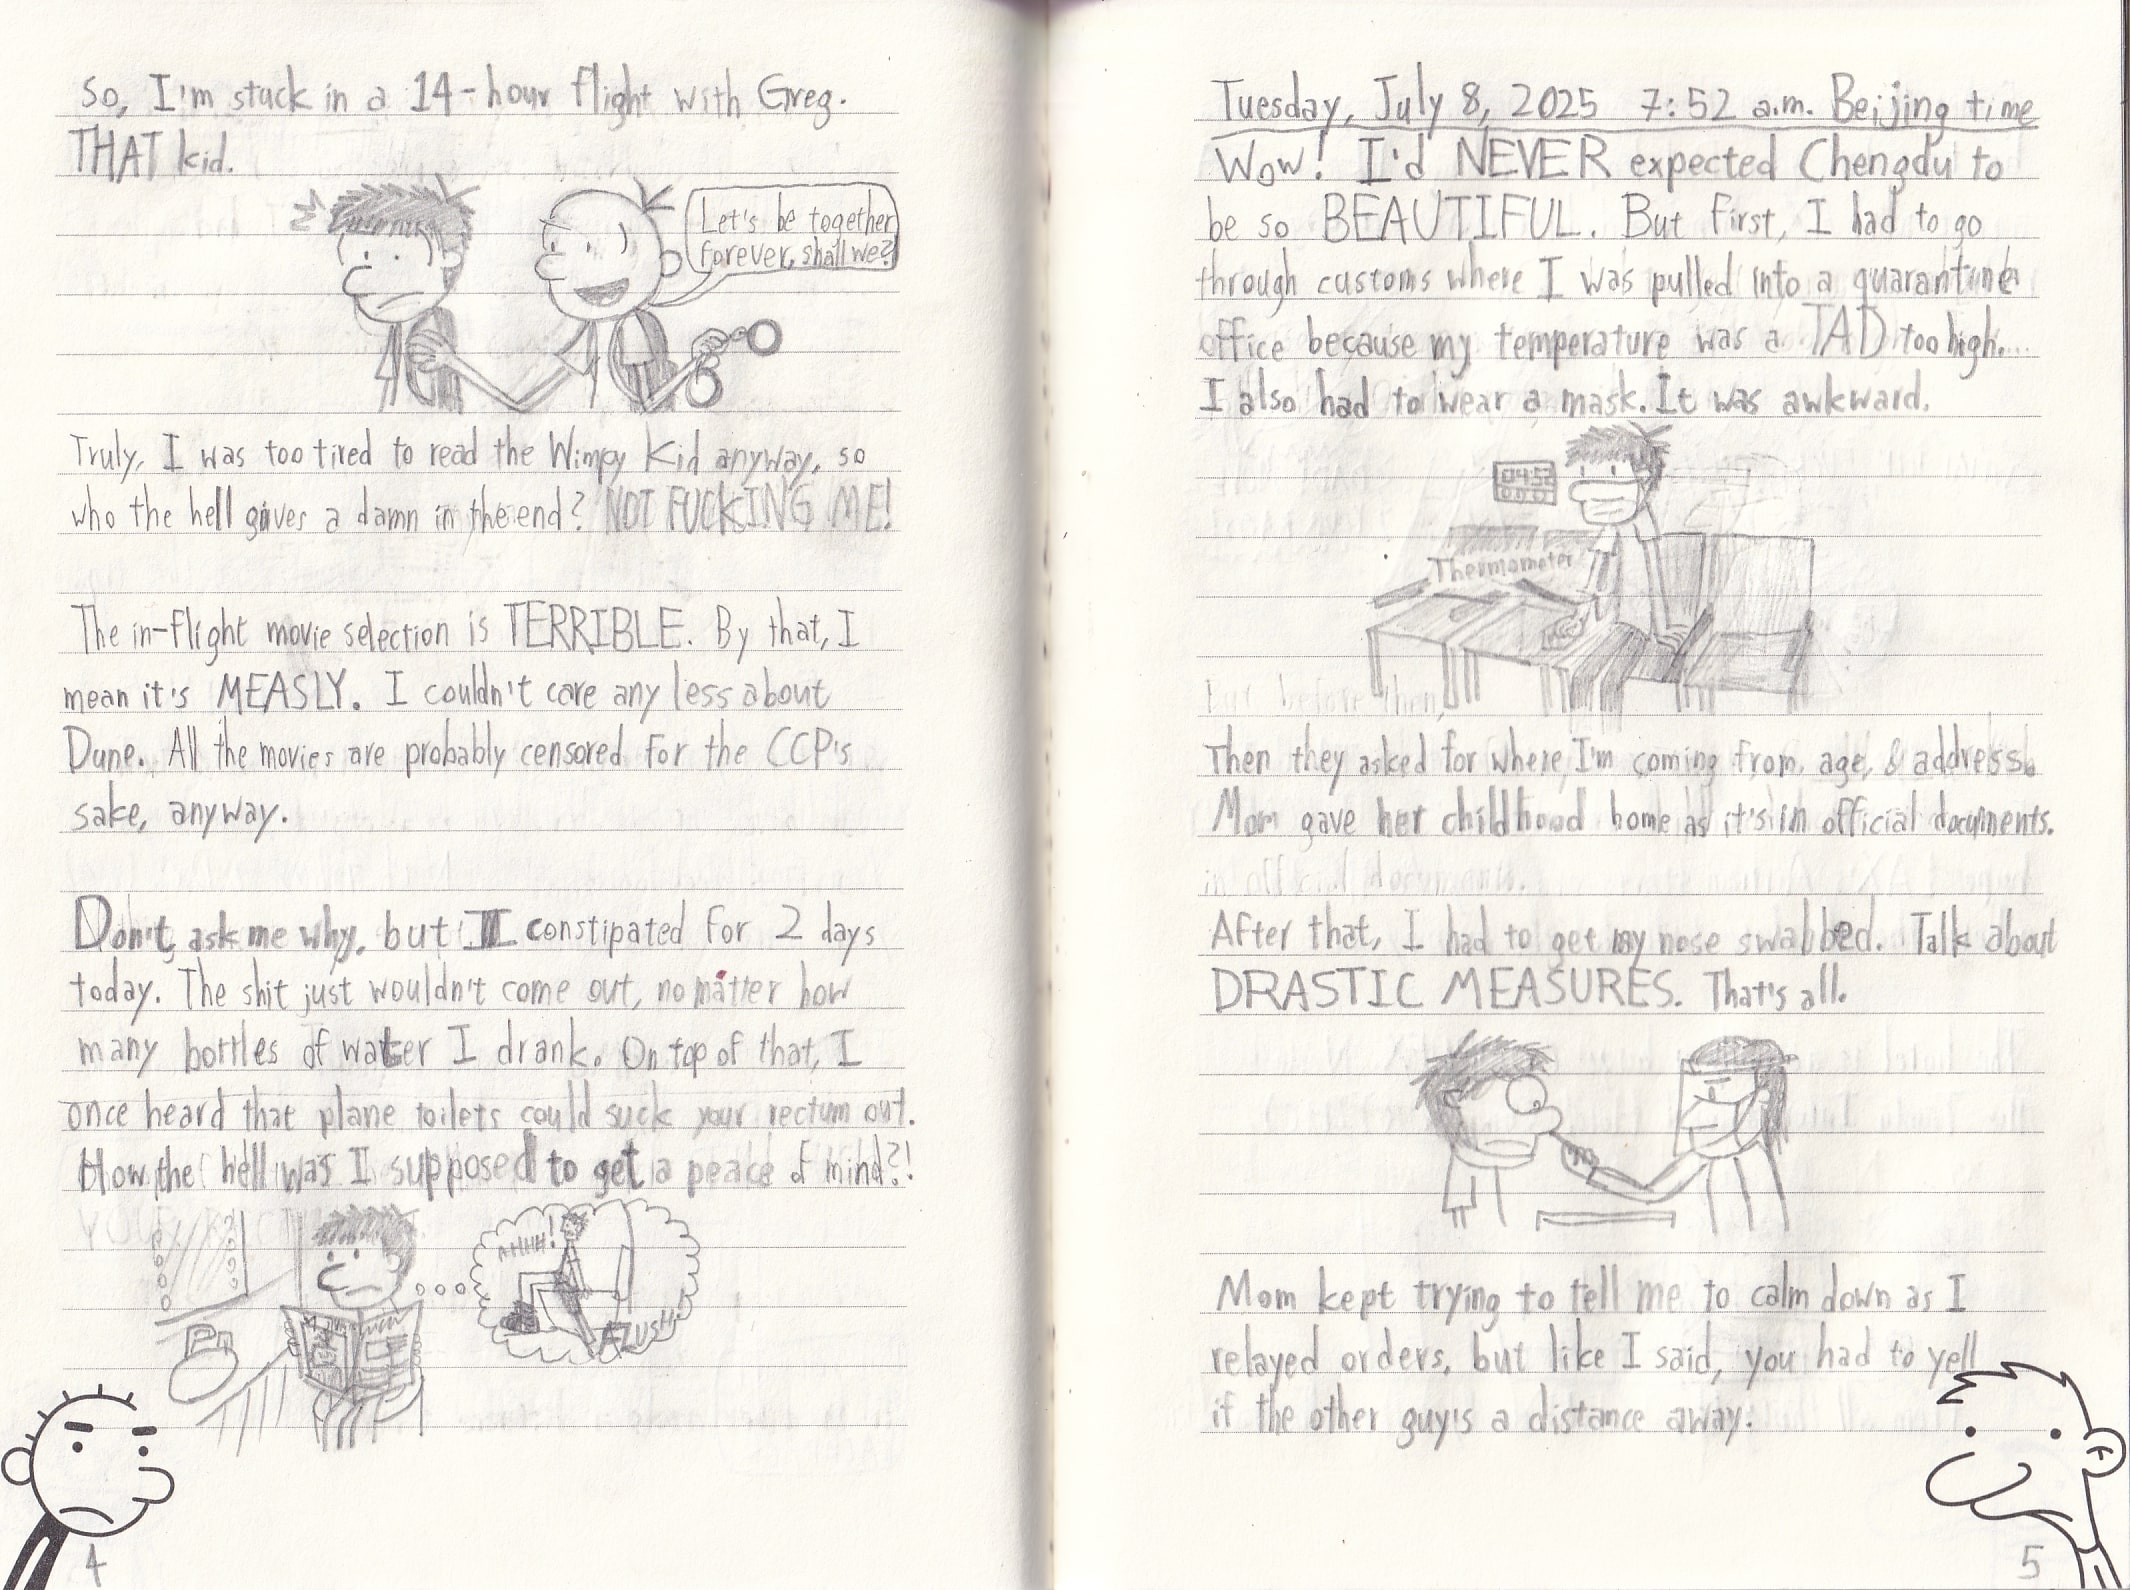 So, I'm stuck in a 14-hour flight with Greg.
THAT kid.
Let's be together
forever, shall we?
Truly, I was too tired to read the Wimpy Kid anyway, so
who the hell gives a damn in the end? NOT FUCKING ME!
The in-flight movie selection is TERRIBLE. By that, I
mean it's MEASLY. I couldn't care any less about
Dune. All the movies are probably censored for the CCP's
sake, anyway.
Don't ask me why, but I constipated for 2 days
today. The shit just wouldn't come out, no matter how
many bottles of water I drank. On top of that, I
once heard that plane toilets could suck your rectum out.
How the hell was I supposed to get a peace of mind?!
AHHH!
FLUSH!
4
Tuesday, July 8, 2025 7:52 a.m. Beijing time
Wow! I'd NEVER expected Chengdu to
be so BEAUTIFUL. But first, I had to go
through customs where I was pulled into a quarantine
office because my temperature was a TAD too high...
I also had to wear a mask. It was awkward.
04:52
Thermometer
but before then,
Then they asked for where I'm coming from, age, & address.
Mom gave her childhood home as it's in official documents.
After that, I had to get my nose swabbed. Talk about
DRASTIC MEASURES. That's all.
Mom kept trying to tell me to calm down as I
relayed orders, but like I said, you had to yell
if the other guy's a distance away.
5